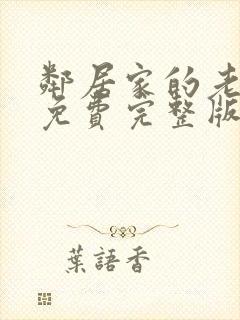 鄰居家的老
免費完整版
葉語香